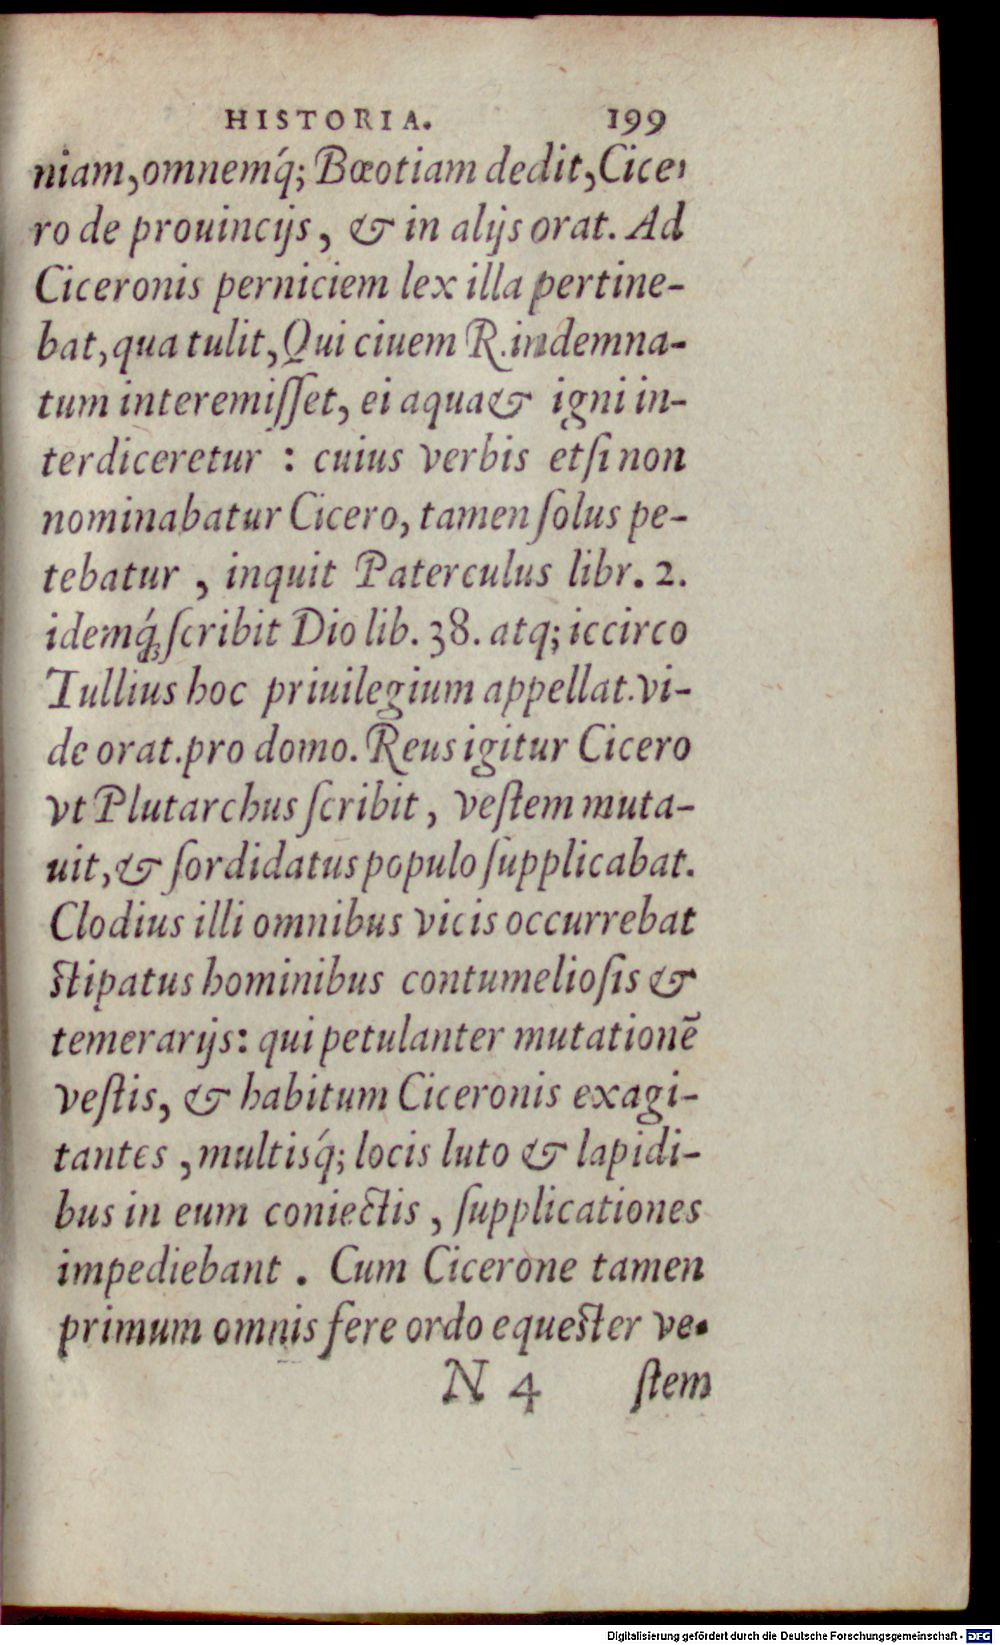 HISTORIA. 199
niam, omnemq́; Bœotiam dedit, Cice-
ro de prouincijs, & in alijs orat. Ad
Ciceronis perniciem lex illa pertine-
bat, qua tulit, Qui ciuem R. indemna-
tum interemiſſet, ei aqua & igni in-
terdiceretur : cuius verbis etſi non
nominabatur Cicero, tamen ſolus pe-
tebatur , inquit Paterculus libr. 2.
idemq́ ſcribit Dio lib. 38. atq; iccirco
Tullius hoc priuilegium appellat. vi-
de orat. pro domo. Reus igitur Cicero
vt Plutarchus ſcribit , veſtem muta-
uit, & ſordidatus populo ſupplicabat.
Clodius illi omnibus vicis occurrebat
ſtipatus hominibus contumelioſis &
temerarijs: qui petulanter mutationē
veſtis, & habitum Ciceronis exagi-
tantes , multisq́; locis luto & lapidi-
bus in eum coniectis , ſupplicationes
impediebant . Cum Cicerone tamen
primum omnis fere ordo equeſter ve-
N 4 ſtem
Digitalisierung gefördert durch die Deutsche Forschungsgemeinschaft - DFG